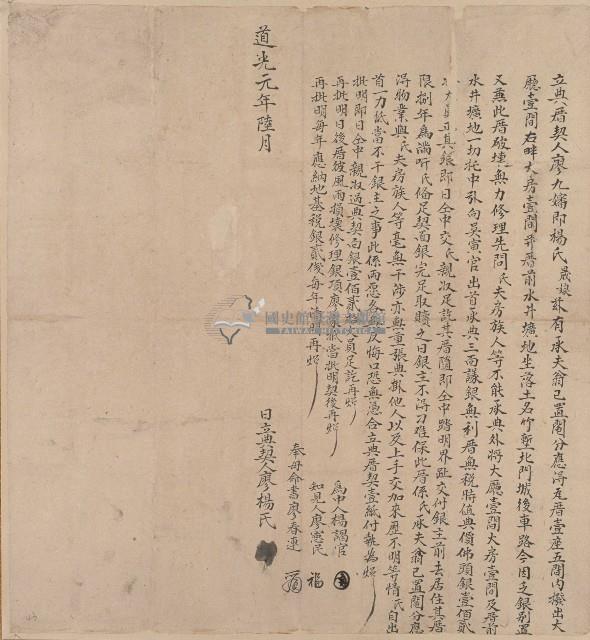 立典厝契人廖九嬸即楊氏晟娘玆有承夫翁己置鬮分應得瓦厝壹座五間內撥出大
廳壹間右畔大房壹間并厝前水井壙地坐落土名竹塹北門城後車路今因乏銀別置
又無此厝破壞無力修理先問氏夫房族人等不能承典外將大廳壹間大房壹間及厝前
水井壙地一切托中引向吳寅官出首承典三面議銀無利厝無稅時值典價佛頭銀壹佰貳
其銀即日仝中交氏親收足訖其厝隨即仝中踏明界趾交付銀主前去居住其厝
限捌年為滿听氏俻足契面銀完足取贖之日銀主不得刁難保此厝係氏承夫翁己置鬮分應
得物業與氏夫房族人等毫無干涉亦無重張典掛他人以及上手交加來歷不明等情氏自出
首一力抵當不干銀主之事此係兩愿各反悔口恐無憑合立典厝契壹紙付執為炤
批明即日仝中親收過典契面銀壹佰貳員足訖再炤
再批明日後厝被風雨損壞修理銀項廖家抵當批明契後再炤
再批明每年應納地基稅銀貳錢每年再炤
為中人楊謁官
知見人廖憲氏
奉母命書廖春連
道光元年陸月 日立典契人廖楊氏
國史館臺灣文獻館
TAIWAN HISTORICA